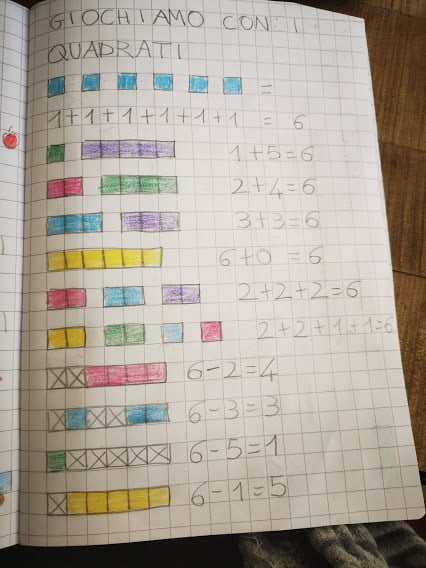 GIOCHIAMO CON I
QUADRATI
=
1+1+1+1+1+1 = 6
1+5=6
2+4=6
3+3=6
6+0 = 6
2+2+2=6
2+2+1+1=6
6-2=4
6-3=3
6-5=1
6-1=5